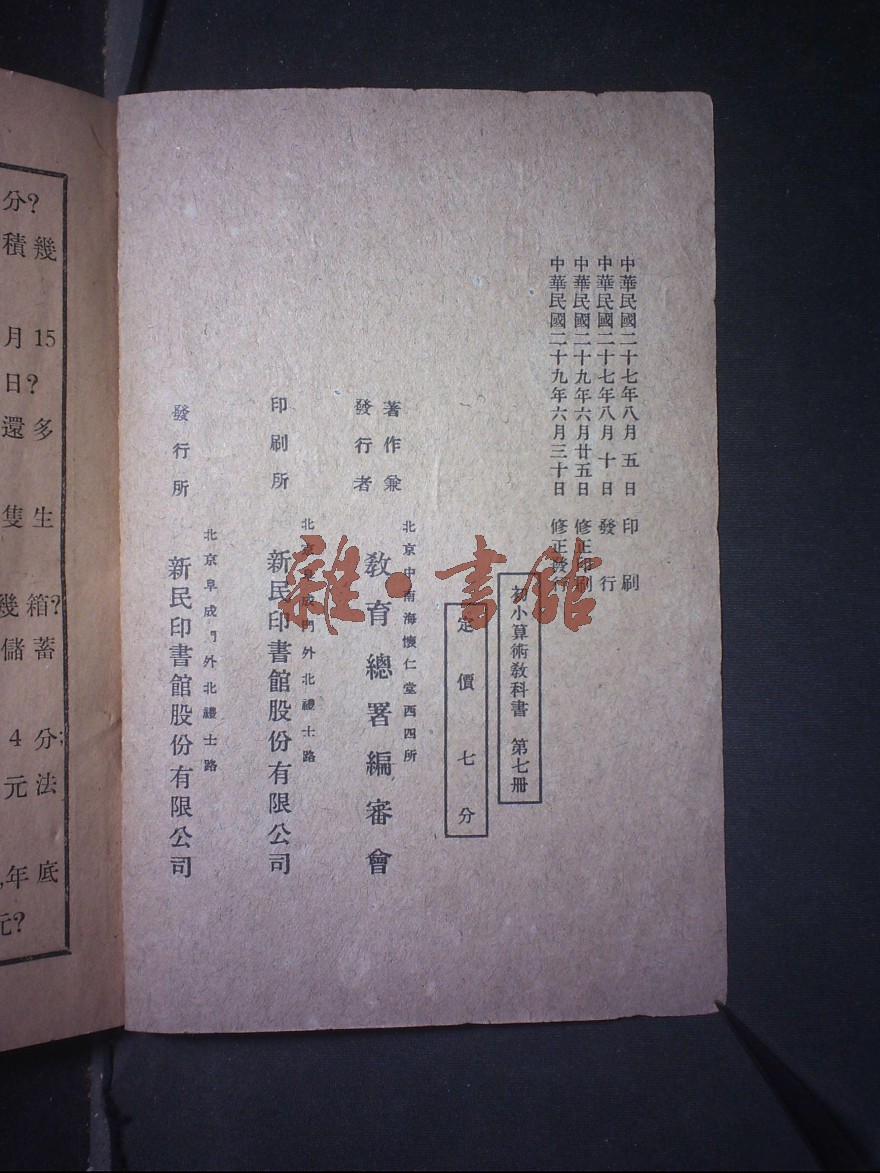 中華民國二十七年八月五日印刷
中華民國二十七年八月十日發行
中華民國二十九年六月廿五日修正印刷
中華民國二十九年六月三十日修正發行
初小算術教科書 第七冊
定價七分
北京中南海懷仁堂西四所
著作兼
發行者
教育總署編審會
北京阜成門外北禮士路
印刷所 新民印書館股份有限公司
北京阜成門外北禮士路
發行所 新民印書館股份有限公司
雜·書館
分?
積幾
月15
日?
還多
隻生
幾箱?
儲蓄
4分;
元法
,年底
元?